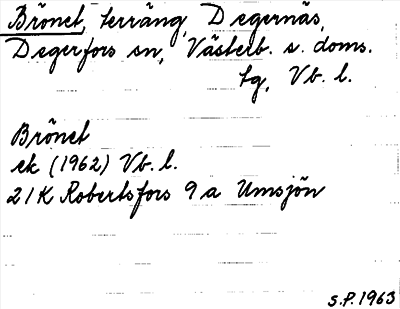 Brönet, terräng, Degernäs,
Degerfors sn, Västerb. s. doms.
tg, Vb. l.
Brönet
ek (1962) Vb. l.
21K Robertsfors 9 a Umsjön
S.P. 1963